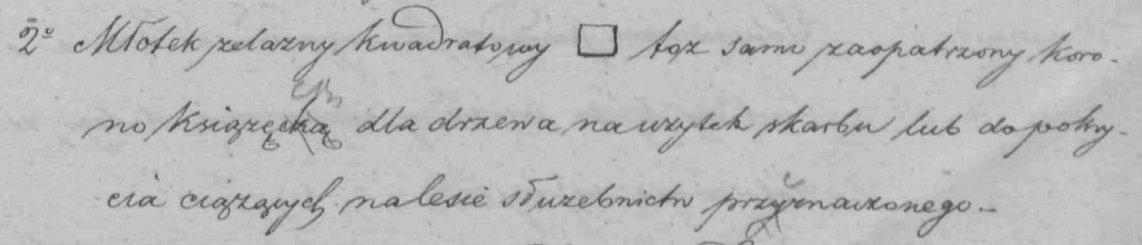 2º Młotek zelazny kwadratowy □ tąz samo zaopatrzony koro-
no książęcką dla drzewa na uzytek skarbu lub do pokry-
cia ciązących na lesie słuzebnictw przyznaczonego.-